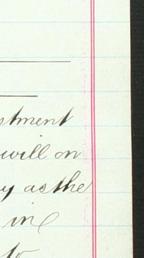 stment
will on
y as the
in
to